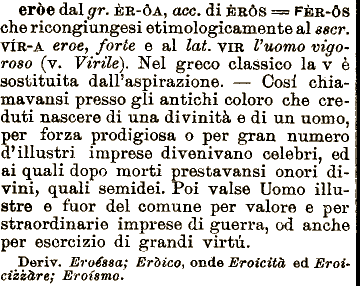 eròe dal gr. ÈR-ÔA, acc. di ÈRÔS = FÈR-ÔS
che ricongiungesi etimologicamente al sscr.
VÍR-A eroe, forte e al lat. VIR l'uomo vigo-
roso (v. Virile). Nel greco classico la v è
sostituita dall'aspirazione. — Cosí chia-
mavansi presso gli antichi coloro che cre-
duti nascere di una divinità e di un uomo,
per forza prodigiosa o per gran numero
d'illustri imprese divenivano celebri, ed
ai quali dopo morti prestavansi onori di-
vini, quali semidei. Poi valse Uomo illu-
stre e fuor del comune per valore e per
straordinarie imprese di guerra, od anche
per esercizio di grandi virtú.
Deriv. Eroéssa; Eròico, onde Eroicità ed Eroi-
cizzàre; Eroísmo.